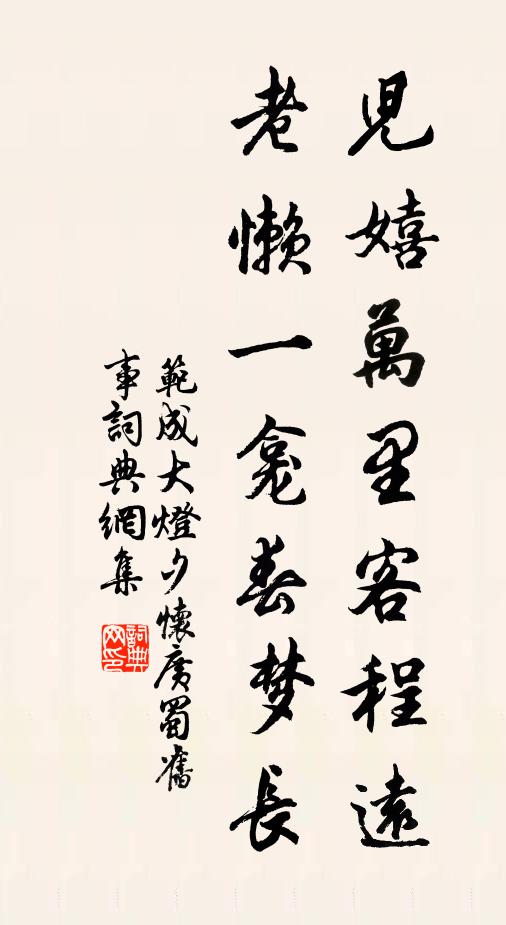 兒嬉萬里客程遠
老懶一龕春梦長
範成大燈夕懷廣蜀舊
事詞典網集
詞典
网印